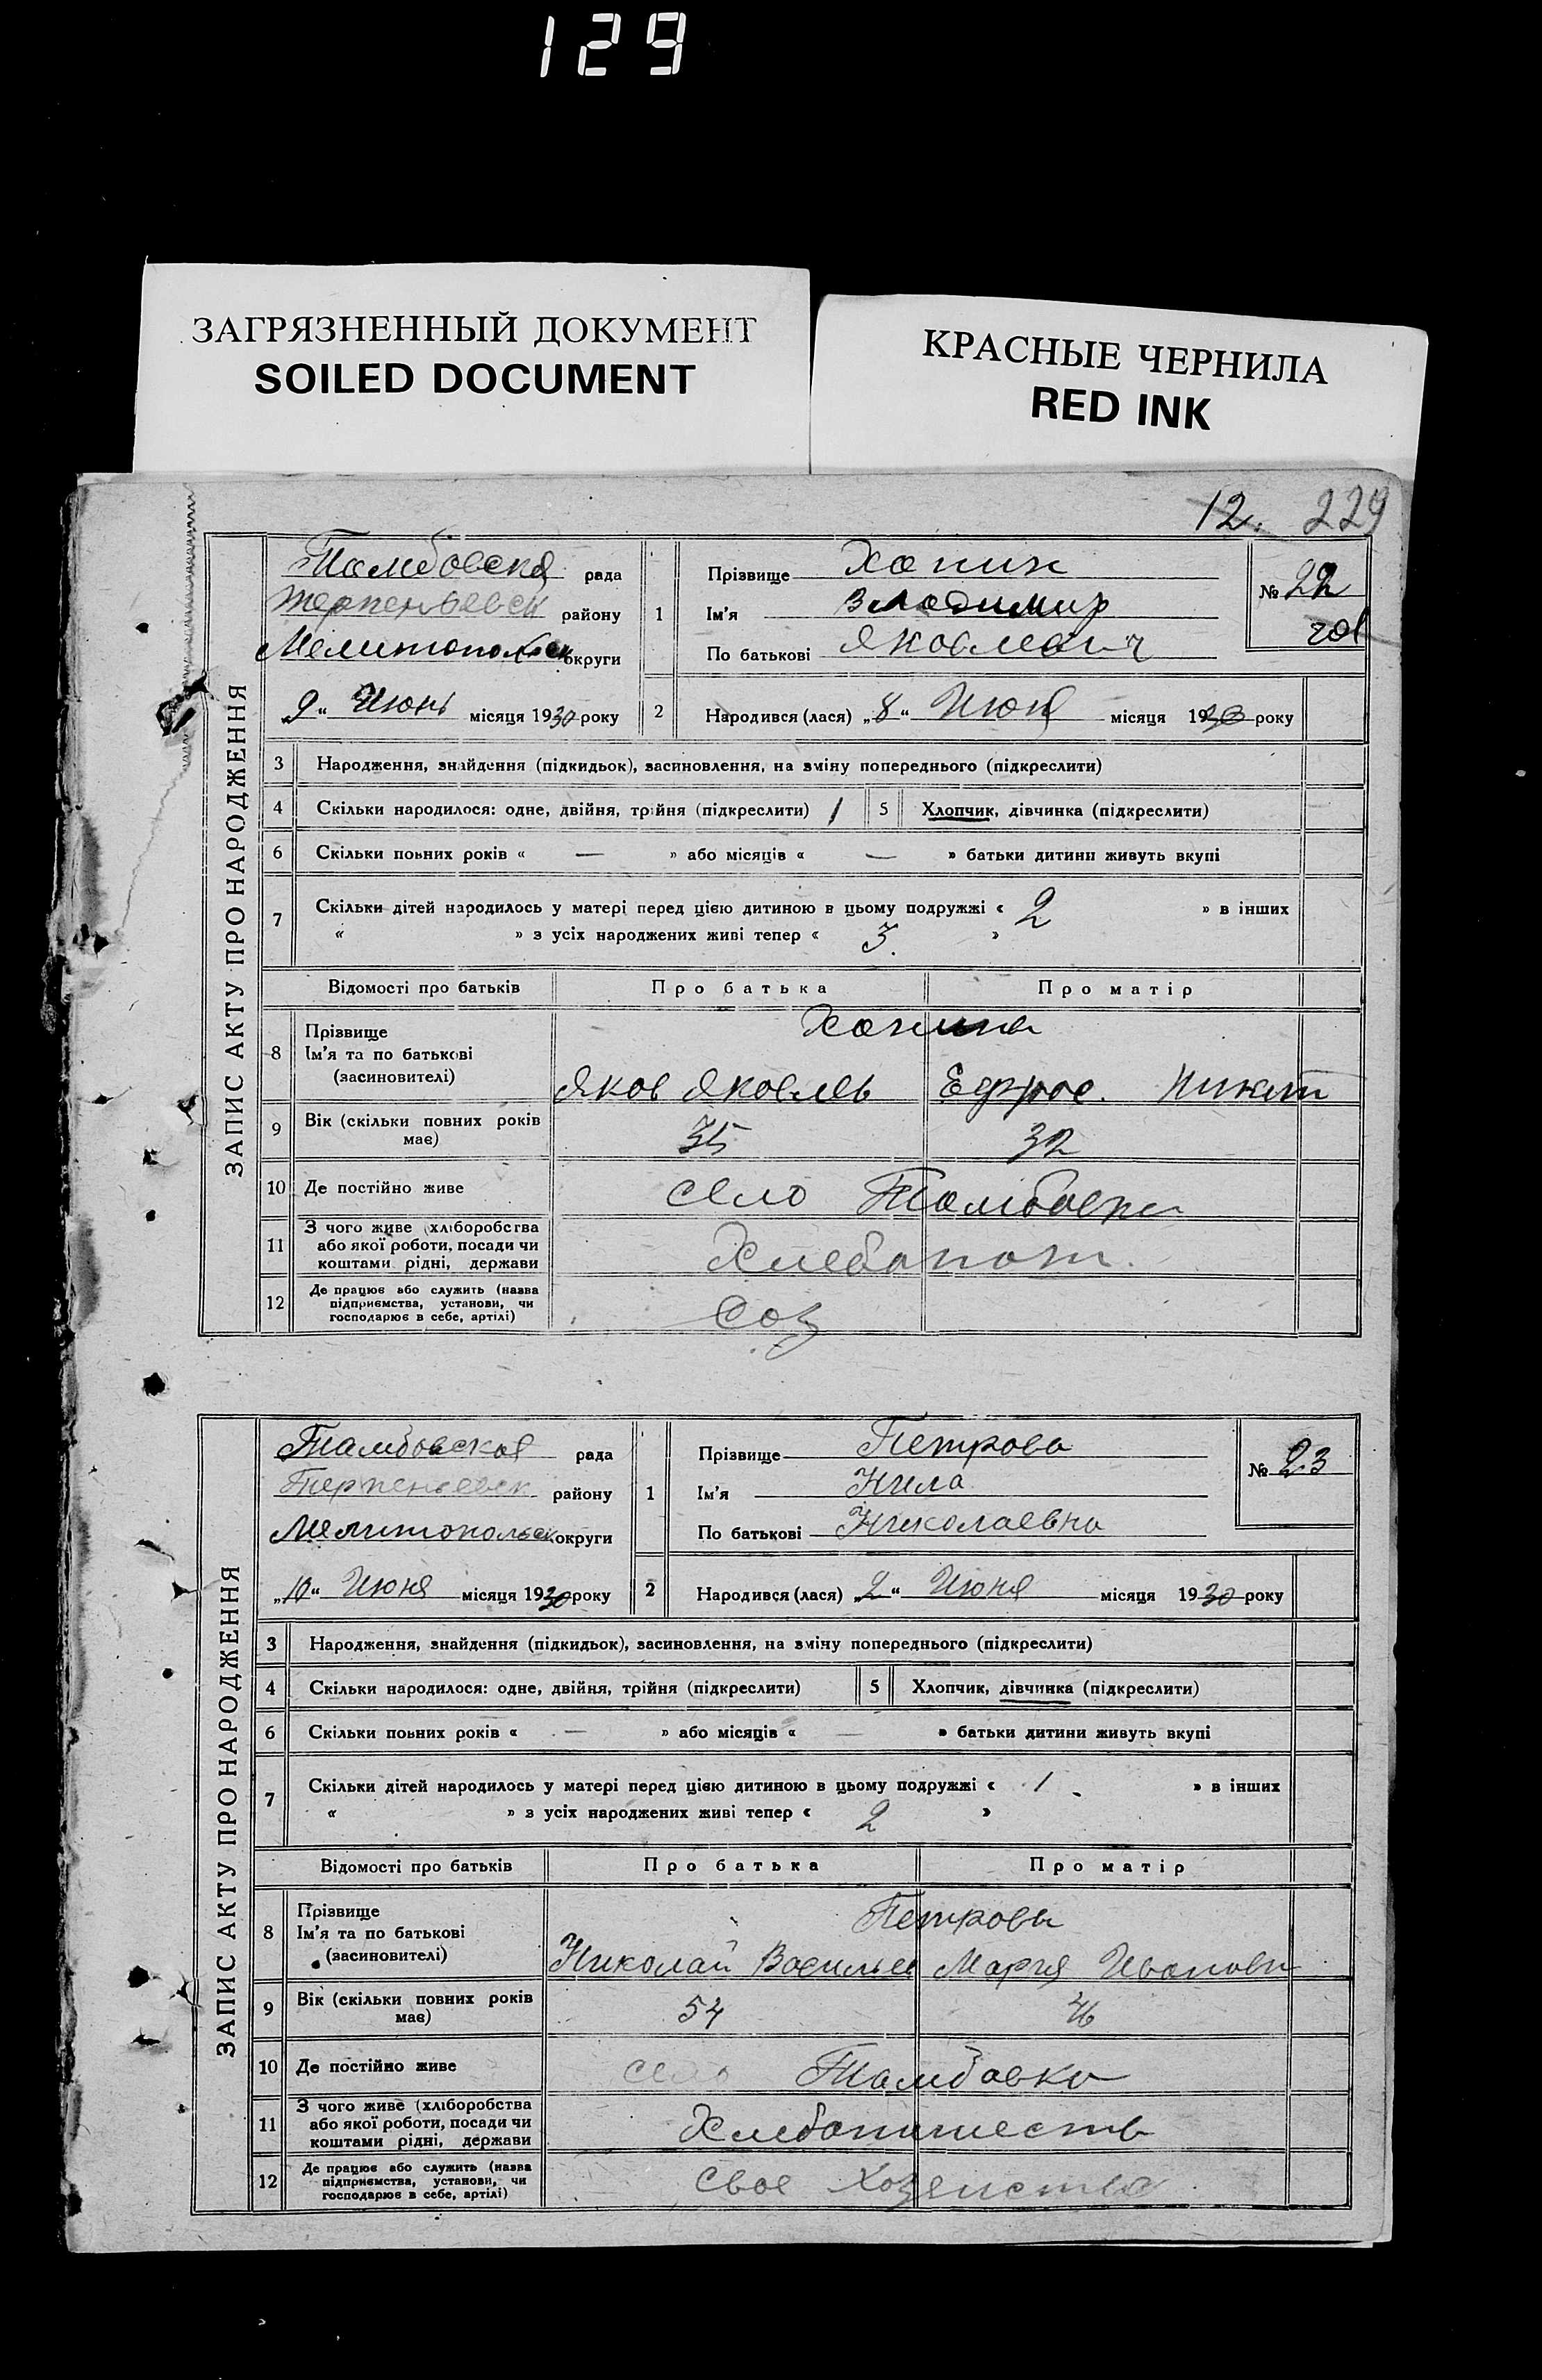 129
ЗАГРЯЗНЕННЫЙ ДОКУМЕНТ
SOILED DOCUMENT
КРАСНЫЕ ЧЕРНИЛА
RED INK
12. 229
ЗАПИС АКТУ ПРО НАРОДЖЕННЯ
Тамбовская рада
Терпеньевск району
Мелитопольск округи
„9“ Июнь місяця 1930 року
1
Прізвище Ханин
Ім'я Владимир
По батькові Яковлевич
№ 22
чол
2 Народився (лася) „8“ Июня місяця 1930 року
3 Народження, знайдення (підкидьок), засиновлення, на зміну попереднього (підкреслити)
4 Скільки народилося: одне, двійня, трійня (підкреслити) 1 5 Хлопчик, дівчинка (підкреслити)
6 Скільки повних років « — » або місяців « — » батьки дитини живуть вкупі
7 Скільки дітей народилось у матері перед цією дитиною в цьому подружжі « 2 » в інших
« » з усіх народжених живі тепер « 3. »
Відомості про батьків Про батька Про матір
8 Прізвище
Ім'я та по батькові
(засиновителі)
Яков Яковлев Ефрос. Никит
9 Вік (скільки повних років
має) 35 32
10 Де постійно живе село Тамбовка
11 З чого живе (хліборобства
або якої роботи, посади чи
коштами рідні, держави
Хлебопаш.
12 Де працює або служить (назва
підприємства, установи, чи
господарює в себе, артілі)
Соз
ЗАПИС АКТУ ПРО НАРОДЖЕННЯ
Тамбовская рада
Терпеньевск району
Мелитопольск округи
„10“ Июня місяця 1930 року
1
Прізвище Петрова
Ім'я Нила
По батькові Николаевна
№ 23
2 Народився (лася) „2“ Июня місяця 1930 року
3 Народження, знайдення (підкидьок), засиновлення, на зміну попереднього (підкреслити)
4 Скільки народилося: одне, двійня, трійня (підкреслити) 5 Хлопчик, дівчинка (підкреслити)
6 Скільки повних років « — » або місяців « — » батьки дитини живуть вкупі
7 Скільки дітей народилось у матері перед цією дитиною в цьому подружжі « 1 » в інших
« » з усіх народжених живі тепер « 2 »
Відомості про батьків Про батька Про матір
8 Прізвище Петровы
Ім'я та по батькові
(засиновителі)
Николай Васильев Мария Ивановн
9 Вік (скільки повних років
має) 54 46
10 Де постійно живе село Тамбовка
11 З чого живе (хліборобства
або якої роботи, посади чи
коштами рідні, держави
12 Де працює або служить (назва
підприємства, установи, чи
господарює в себе, артілі)
Свое хозяиства